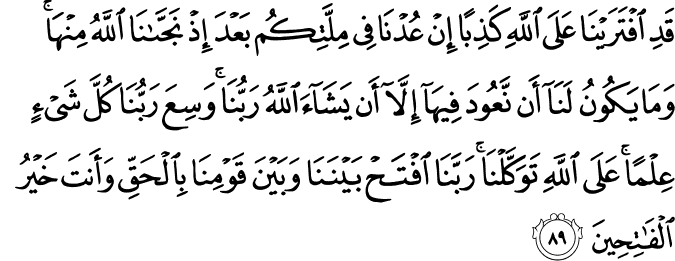 قَدِ ٱفْتَرَيْنَا عَلَى ٱللَّهِ كَذِبًا إِنْ عُدْنَا فِى مِلَّتِكُم بَعْدَ إِذْ نَجَّىٰنَا ٱللَّهُ مِنْهَا ۚ
وَمَا يَكُونُ لَنَآ أَن نَّعُودَ فِيهَآ إِلَّآ أَن يَشَآءَ ٱللَّهُ رَبُّنَا ۚ وَسِعَ رَبُّنَا كُلَّ شَىْءٍ
عِلْمًا ۚ عَلَى ٱللَّهِ تَوَكَّلْنَا ۚ رَبَّنَا ٱفْتَحْ بَيْنَنَا وَبَيْنَ قَوْمِنَا بِٱلْحَقِّ وَأَنتَ خَيْرُ
ٱلْفَـٰتِحِينَ ٨٩